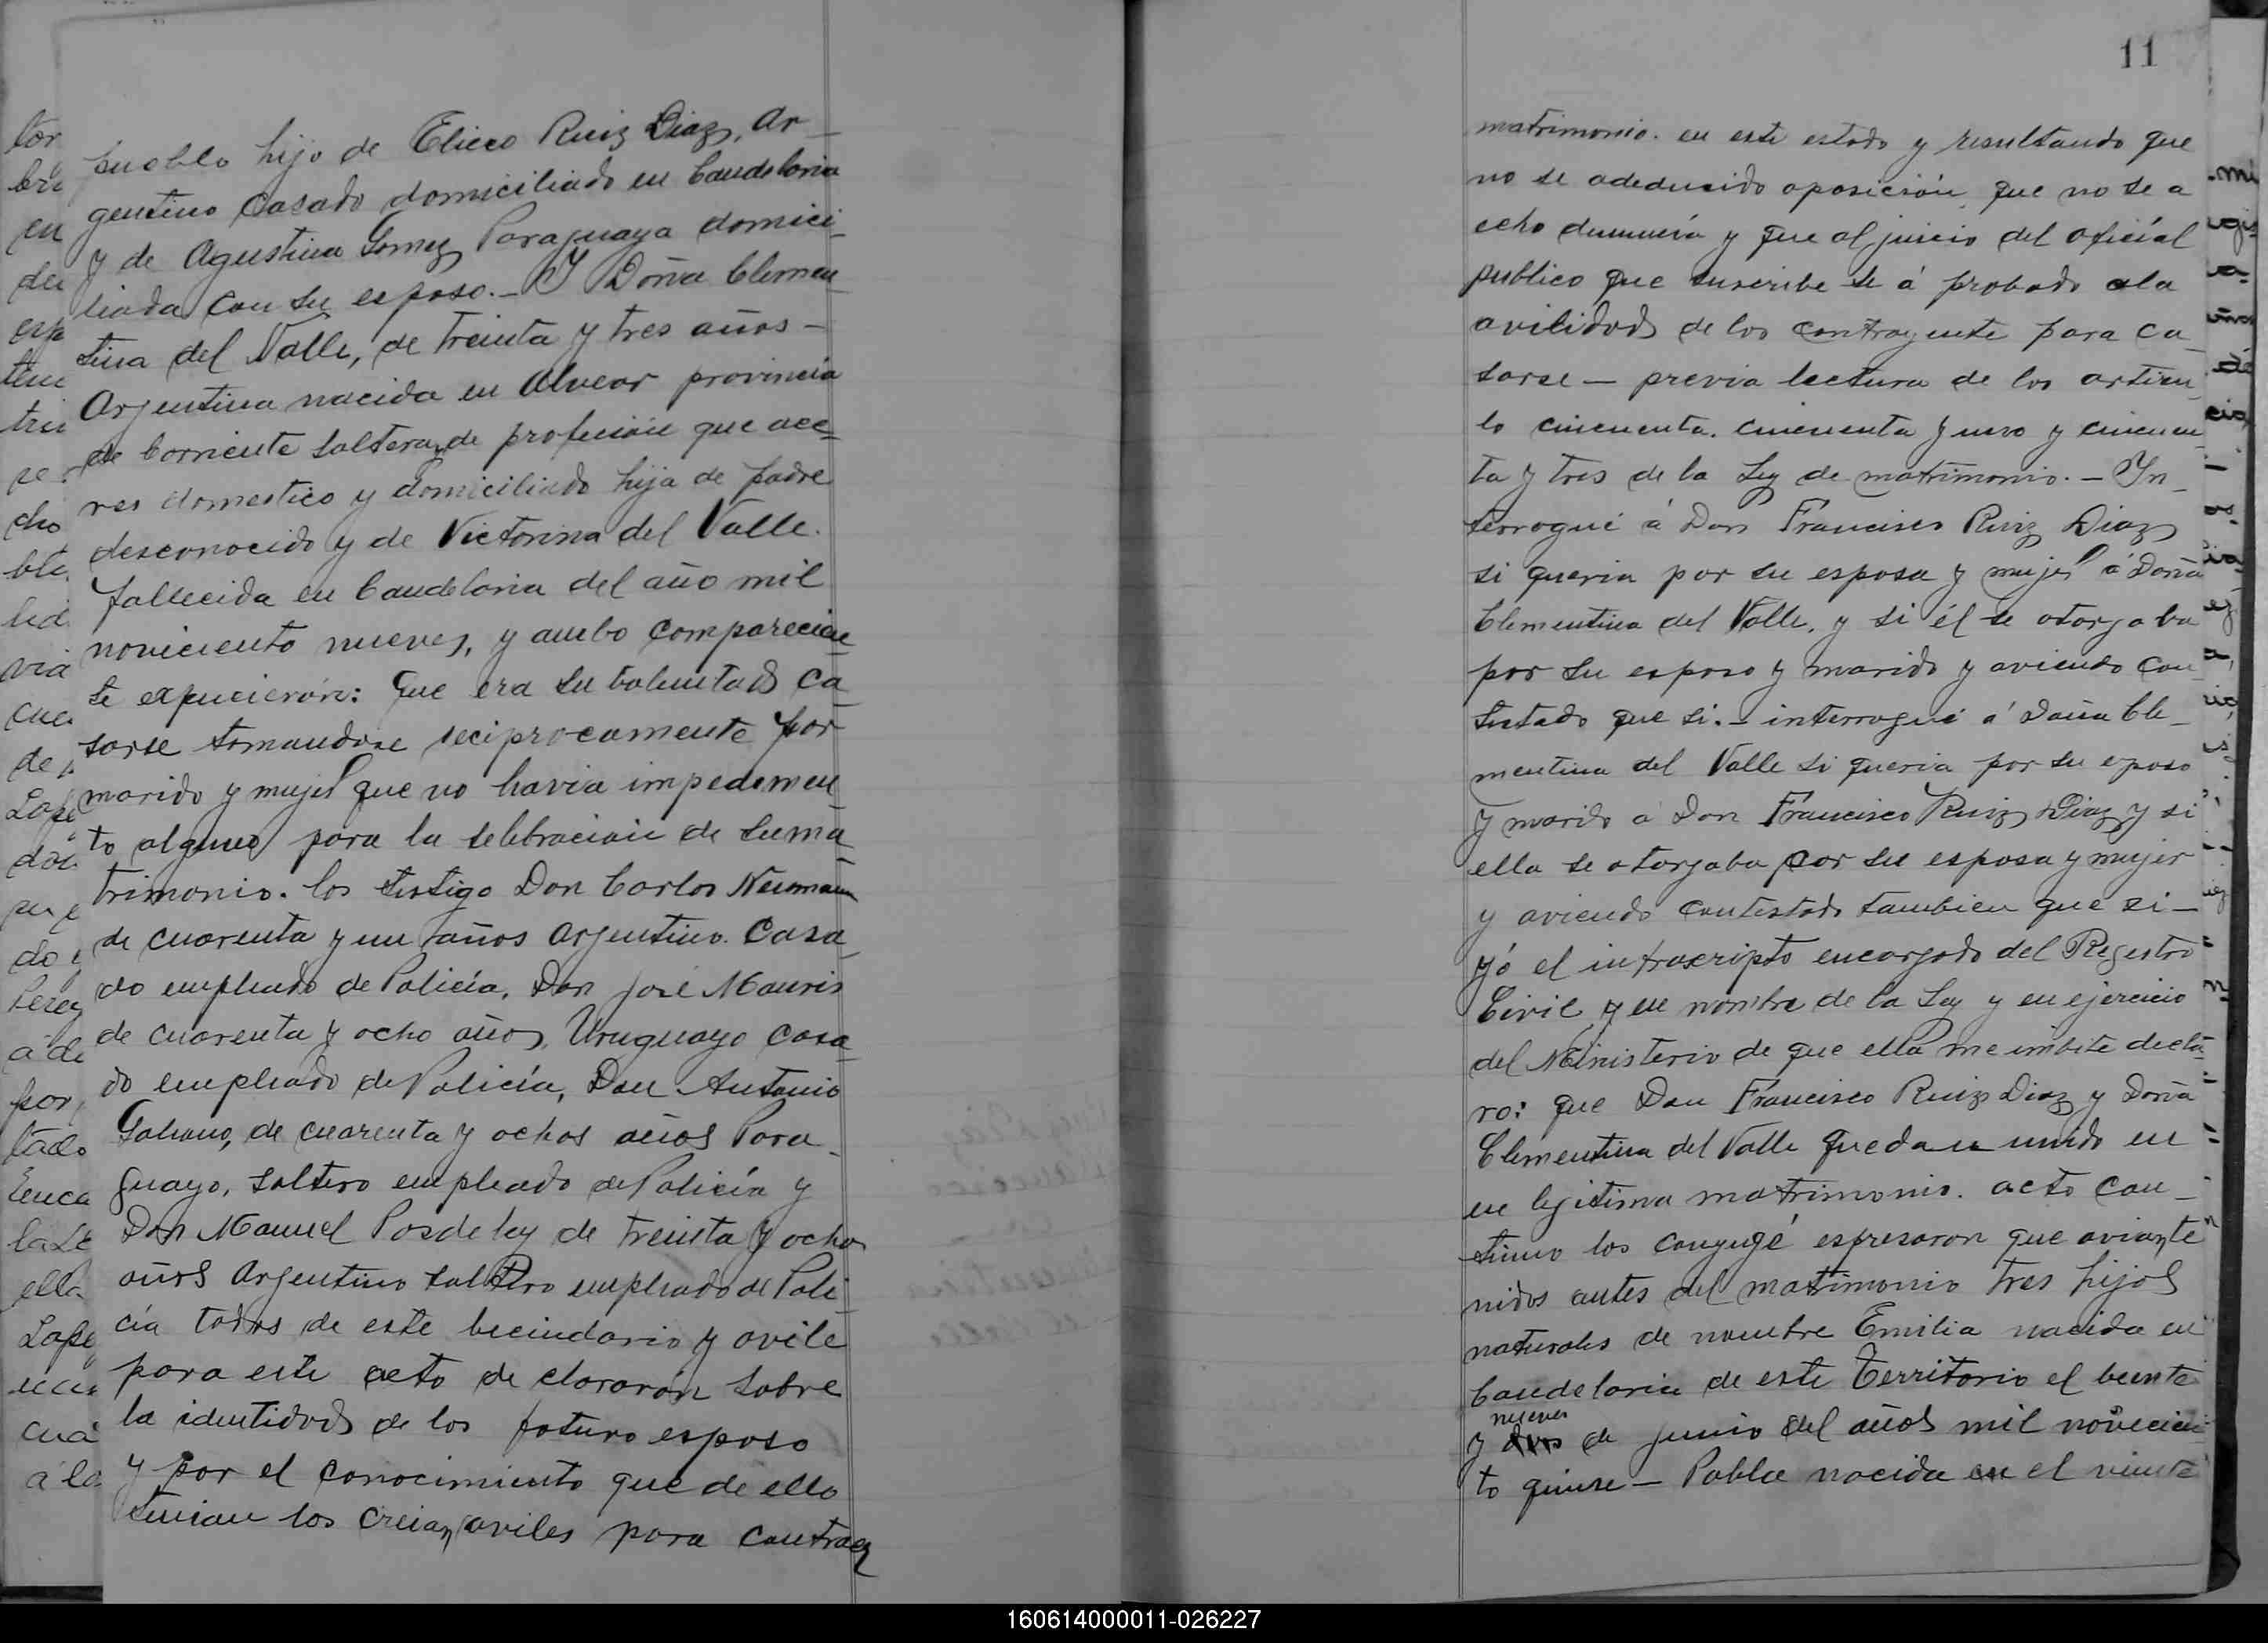 pueblo hijo de Elieeo Ruiz Diaz, Ar_
gentino Casado domiciliado en Candelaria
y de Agustina Gomez Paraguaya domici_
liada con su esposo._ Y Doña Clemen_
tina del Valle, de treinta y tres años _
Argentina nacida en Alvear provincia
de Corriente Soltera, de profeción que ace_
res domestico y domiciliado hija de padre
desconocido y de Victorina del Valle.
fallecida en Candelaria del año mil
noviciento nueves, y ambo comparecien_
te expucierón: que era su boluntad ca_
sarse tomandose reciprocamente por
marido y mujer que no havia impedemen_
to alguno para la selebración de su ma_
trimonio. los testigo Don Carlos Neumann
de cuarenta y un años Argentino. Casa_
do empleado de Policía. Don José Mauris
de cuarenta y ocho años, Uruguayo casa_
do empleado de Policía, Don Antonio
Galeano, de cuarenta y ochos años Para_
guayo, Soltero empleado de Policía y
Don Manuel Posdeley de treinta y ocho
años Argentino Soltero empleado de Poli_
cía todos de este becindario y avile
para este acto de clararón sobre
la identidad de los foturo esposo
y por el conocimiento que de ello
tenian los creian aviles para contraer
11
matrimonio. en este estado y resultando que
no se adeducido oposición, que no se a
echo dumunia y que al juicio del oficial
publico que suscribe se á probado ala
avilidad de los contrayente para ca_
sarse _ previa lectura de los articu_
lo cincuenta. cincuenta y uno y cincuen_
ta y tres de la Ley de matrimonio._ In_
terrogué á Don Francisco Ruiz Diaz
si queria por su esposa y mujer á Doña
Clementina del Valle, y si él se otorgaba
por su esposo y marido y aviendo con_
testado que si._ interrogué á Doña Cle_
mentina del Valle si queria por su eposo
y marido á Don Francisco Ruiz Diaz y si
ella se otorgaba por su esposa y mujer
y aviendo contestado tambien que si _
yó el infrascripto encargado del Registro
Civil y en nombre de la Ley y en ejercicio
del Ministerio de que ella me imbite decla_
ro: que Don Francisco Ruiz Diaz y Doña
Clementina del Valle quedan unido en
en legitima matrimonio. acto con_
tinuo los conyugé espresaron que avian te
nidos antes del matrimonio tres hijos
naturales de nombre Emilia nacida en
Candelaria de este Territorio el beinte
nueves
y de junio del años mil novecien_
to quinse _ Pabla nacida en el viente
160614000011-026227